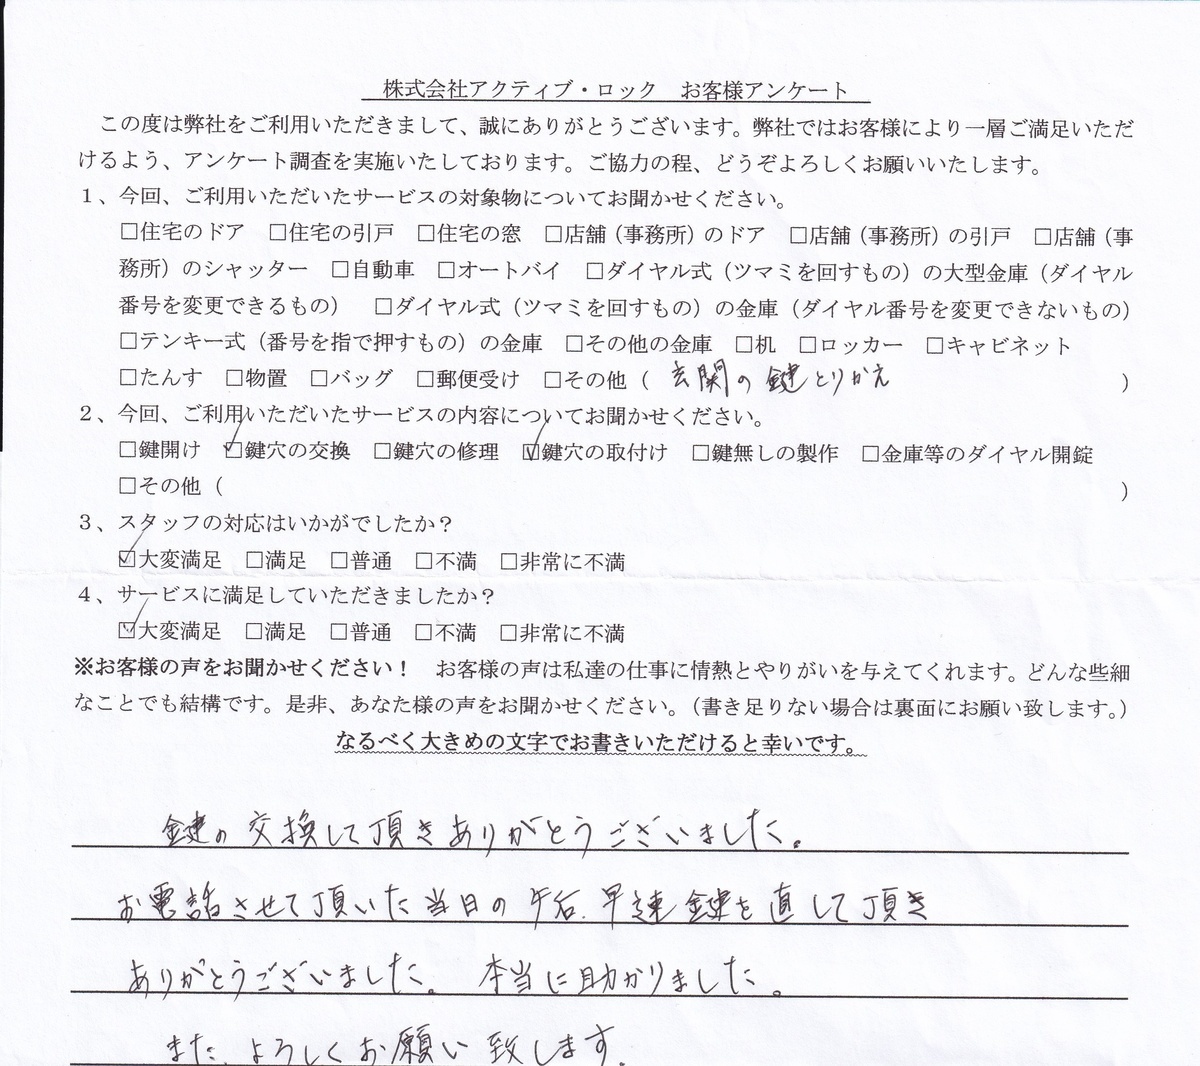 株式会社アクティブ・ロック　お客様アンケート
この度は弊社をご利用いただきまして、誠にありがとうございます。弊社ではお客様により一層ご満足いただ
けるよう、アンケート調査を実施いたしております。ご協力の程、どうぞよろしくお願いいたします。
１、今回、ご利用いただいたサービスの対象物についてお聞かせください。
□住宅のドア　□住宅の引戸　□住宅の窓　□店舗（事務所）のドア　□店舗（事務所）の引戸　□店舗（事
務所）のシャッター　□自動車　□オートバイ　□ダイヤル式（ツマミを回すもの）の大型金庫（ダイヤル
番号を変更できるもの）　□ダイヤル式（ツマミを回すもの）の金庫（ダイヤル番号を変更できないもの）
□テンキー式（番号を指で押すもの）の金庫　□その他の金庫　□机　□ロッカー　□キャビネット
□たんす　□物置　□バッグ　□郵便受け　□その他（ 玄関の鍵とりかえ ）
２、今回、ご利用いただいたサービスの内容についてお聞かせください。
□鍵開け　☑鍵穴の交換　□鍵穴の修理　☑鍵穴の取付け　□鍵無しの製作　□金庫等のダイヤル開錠
□その他（　）
３、スタッフの対応はいかがでしたか？
☑大変満足　□満足　□普通　□不満　□非常に不満
４、サービスに満足していただきましたか？
☑大変満足　□満足　□普通　□不満　□非常に不満
※お客様の声をお聞かせください！　お客様の声は私達の仕事に情熱とやりがいを与えてくれます。どんな些細
なことでも結構です。是非、あなた様の声をお聞かせください。（書き足りない場合は裏面にお願い致します。）
なるべく大きめの文字でお書きいただけると幸いです。
鍵の交換して頂きありがとうございました。
お電話させて頂いた当日の午后、早速鍵を直して頂き
ありがとうございました。本当に助かりました。
また、よろしくお願い致します。